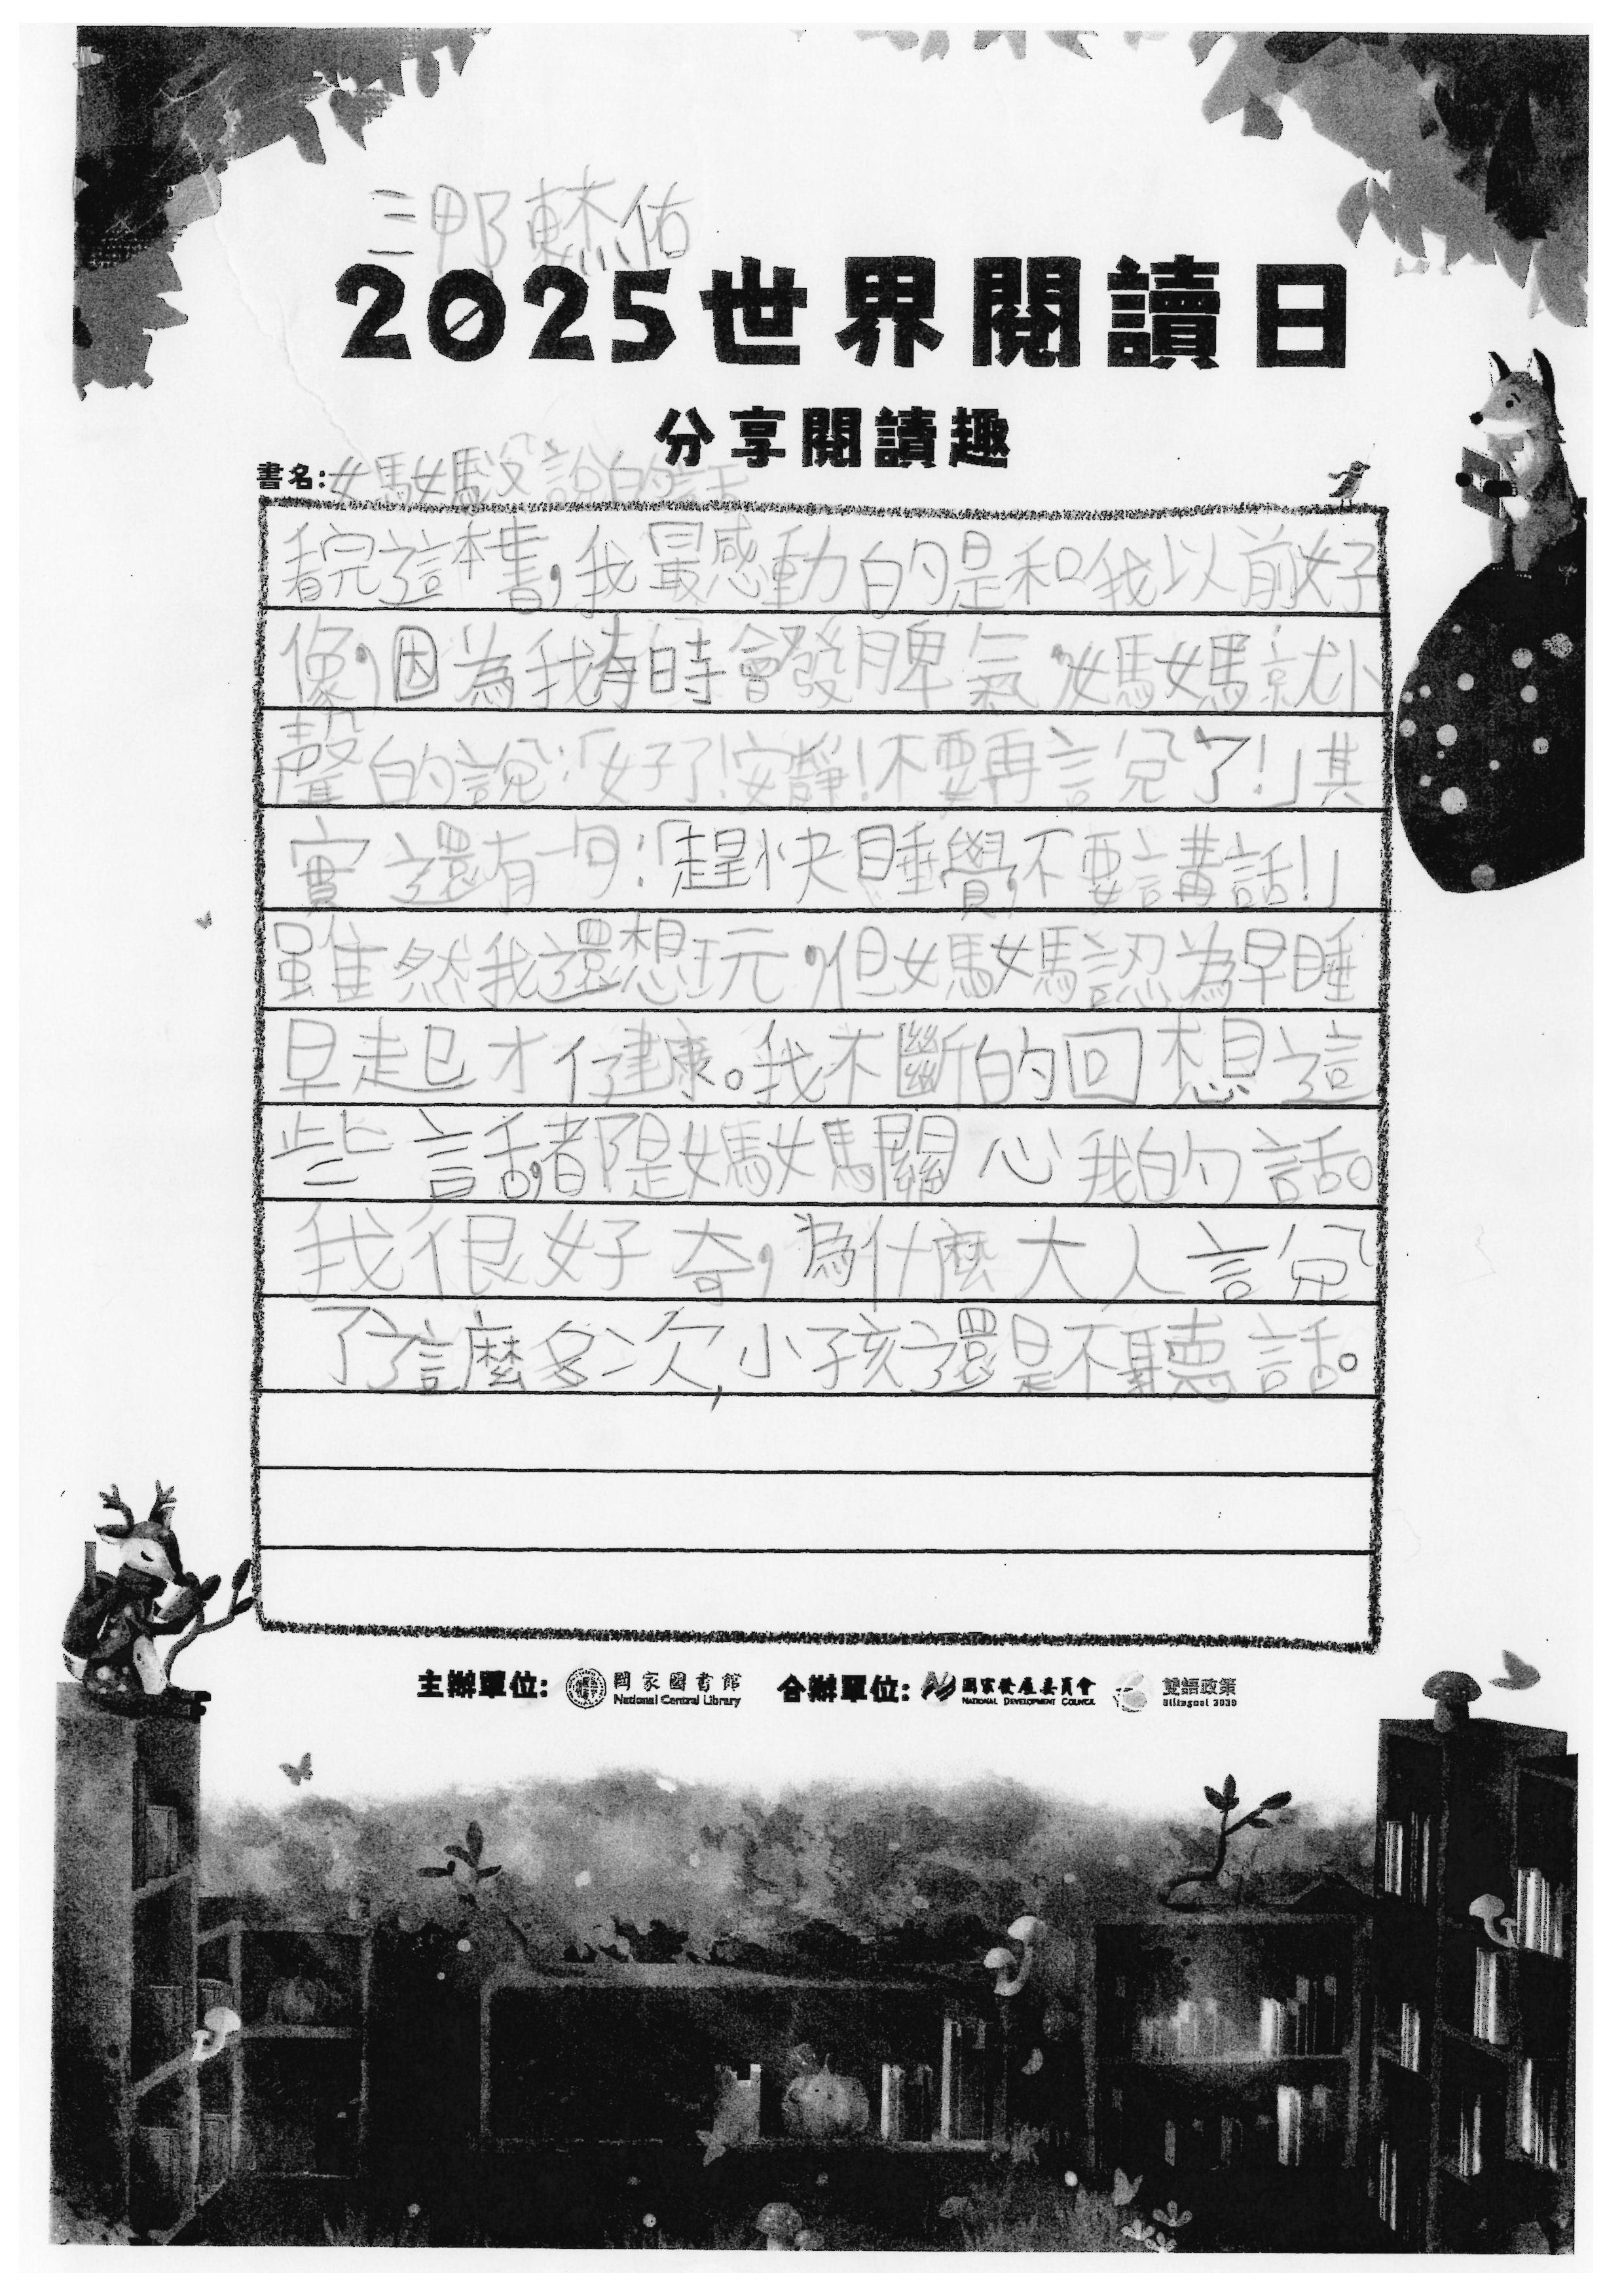 三甲
佑
2025世界閱讀日
分享閱讀趣
書名:媽媽沒說的話
看完這本書,我最感動的是和我以前好
像,因為我有時會發脾氣,媽媽就小
聲的說:「好了!安靜!不要再說了!」其
實還有一句:「趕快睡覺,不要講話!」
雖然我還想玩,但媽媽認為早睡
早起才健康。我不斷的回想這
些話,都是媽媽關心我的話。
我很好奇,為什麼大人說
了這麼多次,小孩還是不聽話。
主辦單位: 國家圖書館 National Central Library 合辦單位: 國家發展委員會 NATIONAL DEVELOPMENT COUNCIL 雙語政策 Bilingual 2030